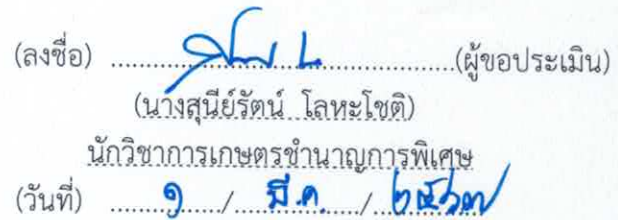 (ลงชื่อ) ....................................................(ผู้ขอประเมิน)
(นางสุนีย์รัตน์ โลหะโชติ)
นักวิชาการเกษตรชำนาญการพิเศษ
(วันที่) ........๑....../.....มี.ค...../..๒๕๖๗